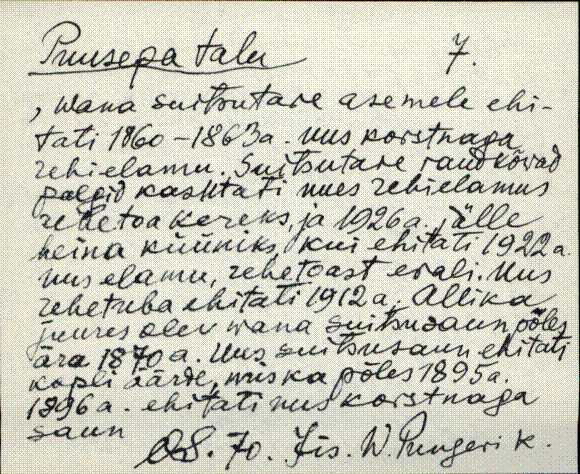 Puusepa talu 7.
, wana suitsutare asemele ehi-
tati 1860-1863a. uus korstnaga
rehielamu. Suitsutare raudkõvad
palgid kashtati uues rehielamus
rehetoa kereks, ja 1926a. jälle
heina küüniks, kui ehitati 1922a.
uus elamu, rehetoast erali. Uus
rehetuba ehitati 1912a. Allika
juures olev wana suitsusaun põles
ära 1870a. Uus suitsusaun ehitati
kopli äärde, mis ka põles 1895a.
1896a. ehitati uus korstnaga
saun
70. Jis. W. Pungerik.